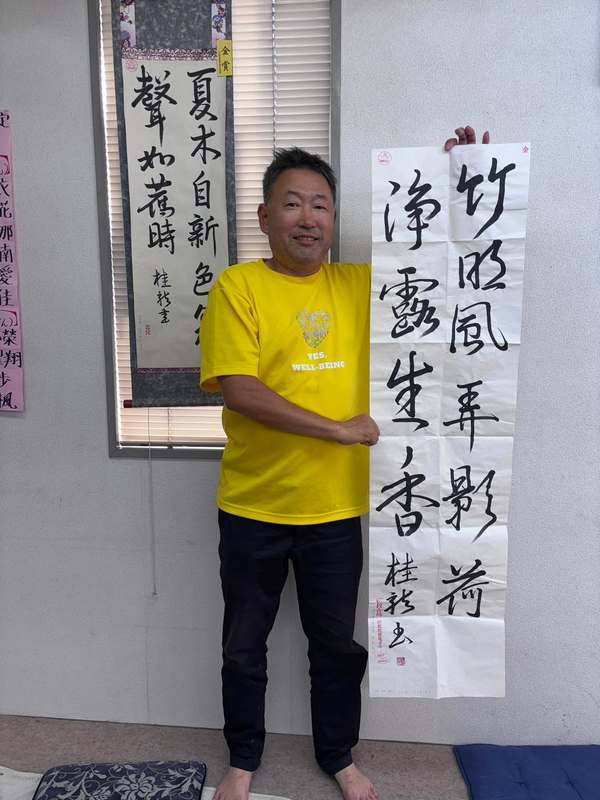 金賞
夏木自新色
聲如舊時
桂龍書
竹明風弄影荷
浄露生香
桂龍書
YES,
WELL-BEING
花那南愛佳
榮翔歩楓